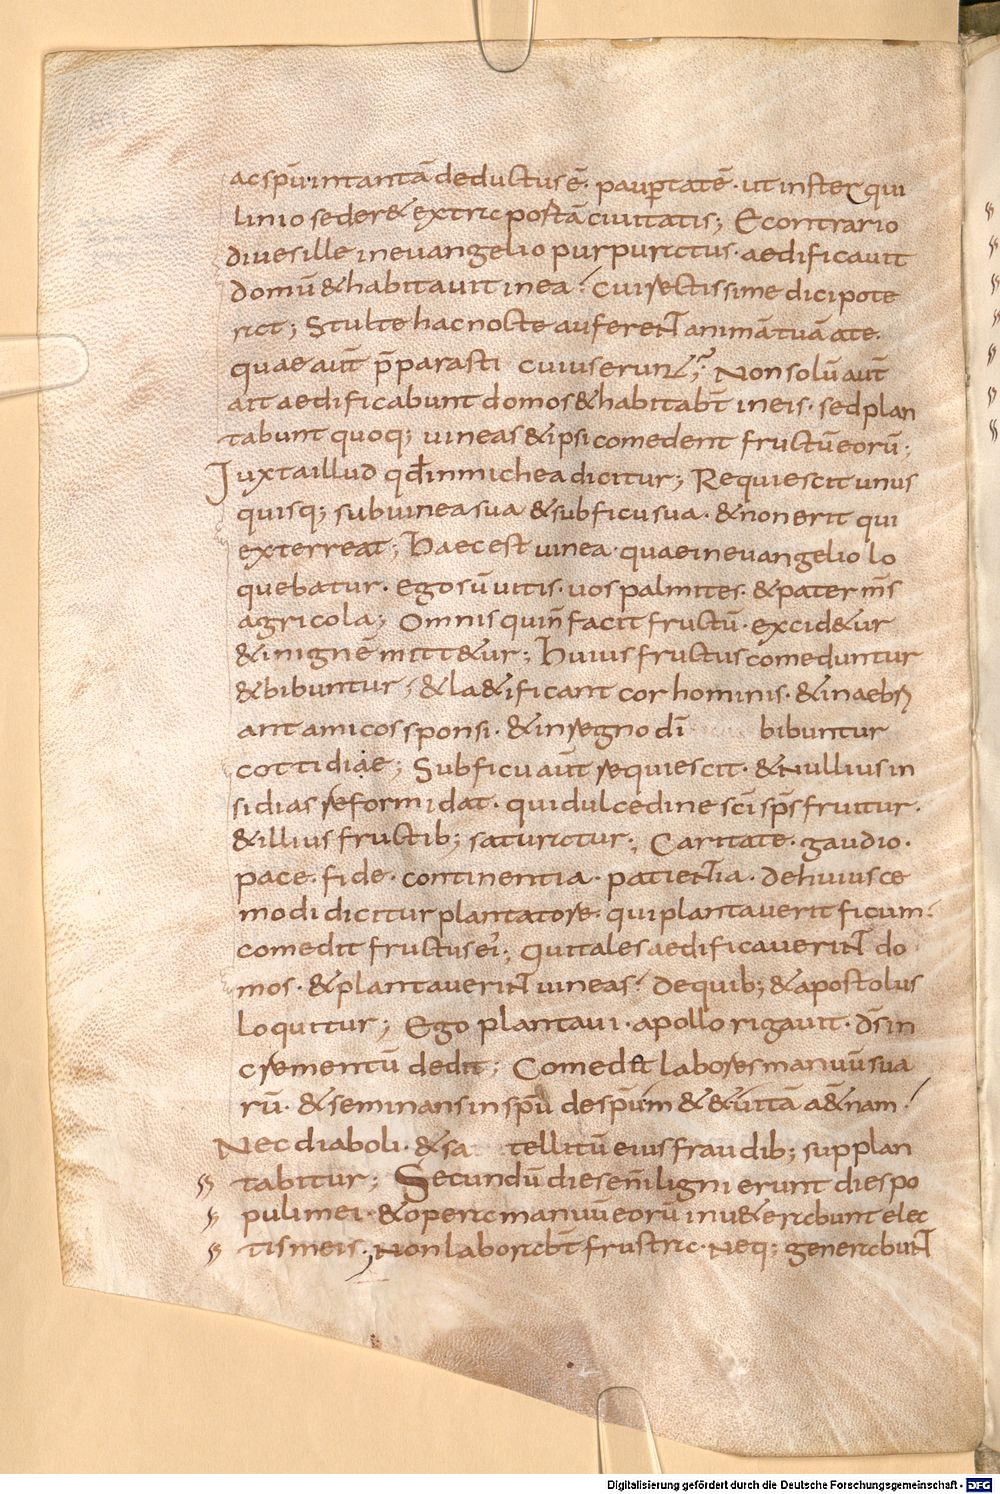 ac spm̄ in tantā deductus ē· pauꝑtatē· ut in ster qui
linio seder& extra portā ciuitatis; E contrario
diues ille in euangelio purpuratus· aedificauit
domū & habitauit in ea· Cui rectissime dici pote
rat; Stulte hac nocte auferent animā tuā a te·
quae aut̄ p̄parasti cuius erunt; Non solū aut̄
ait aedificabunt domos & habitabt̄ in eis· sed plan
tabunt quoq; uineas & ipsi comedent fructū eorū·
Juxta illud qd̄ in michea dicitur; Requiescit unus
quisq; sub uinea sua & sub ficu sua· & non erit qui
exterreat; Haec est uinea· quae in euangelio lo
quebatur· ego sū uitis· uos palmites· & pater ms̄
agricola; Omnis qui n̄ facit fructū· excid&ur
& in ignē mitt&ur; Huius fructus comeduntur
& bibuntur· & la&ificant cor hominis· & inaebri
ant amicos sponsi· & in regno dī bibuntur
cottidiae; Sub ficu aut̄ requiescit· & nullius in
sidias reformidat· qui dulcedine scī sp̄s fruitur·
& illius fructib; saturatur; Caritate· gaudio·
pace· fide· continentia· patientia· de huiusce
modi dicitur plantatore· qui plantauerit ficum·
comedit fructus ei'; Qui tales aedificauerint do
mos· & plantauerint uineas· de quib; & apostolus
loquitur; Ego plantaui· apollo rigauit· ds̄ in
crementū dedit; Comedet labores manuū sua
rū· & seminans in spū de spū m& & uitā a&nam·
Nec diaboli· & sa tellitū eius fraudib; supplan
tabitur; Secundū dies enī ligni erunt dies po
puli mei· & opera manuū eorū inu&erabunt elec
tis meis; Non laborabt̄ frustra· neq; generabunt
Digitalisierung gefördert durch die Deutsche Forschungsgemeinschaft - DFG